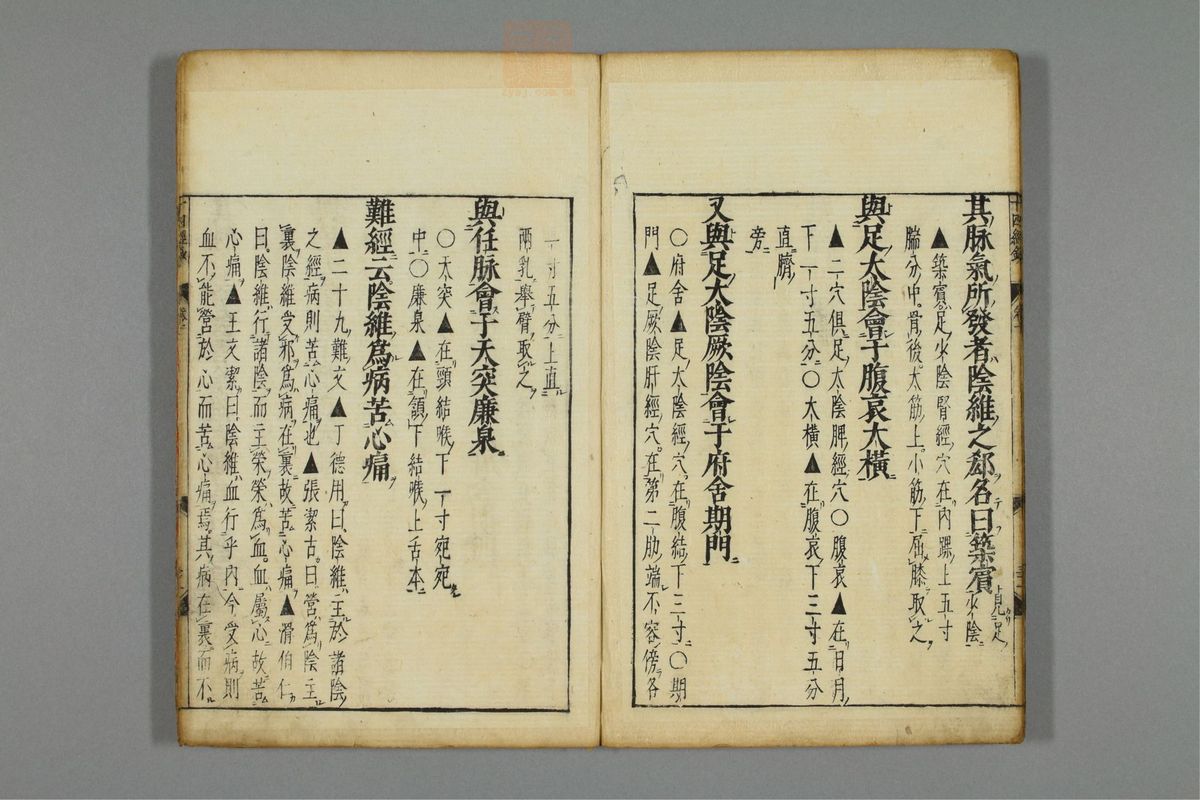 其脉氣所發者陰維之郄名曰築賓見足少陰
▲築賓足少陰腎經穴在內踝上五寸
腨分中骨後大筋上小筋下屈膝取之
與足太陰會于腹哀大橫
▲二穴俱足太陰脾經穴○腹哀▲在日月
下一寸五分○大橫▲在腹哀下三寸五分
直臍
旁
又與足太陰厥陰會于府舍期門
○府舍▲足太陰經穴在腹結下三寸○期
門▲足厥陰肝經穴在第二肋端不容傍各
一寸五分上直
兩乳舉臂取之
與任脉會于天突廉泉
○天突▲在頸結喉下一寸宛宛
中○廉泉▲在頷下結喉上舌本
難經云陰維為病苦心痛
▲二十九難文▲丁德用曰陰維主於諸陰
之經病則苦心痛也▲張潔古曰營為陰主
裏陰維受邪為病在裏故苦心痛▲滑伯仁
曰陰維行諸陰而主榮榮為血血屬心故苦
心痛▲王文潔曰陰維血行乎內今受病則
血不能營於心而苦心痛焉其病在裏而不